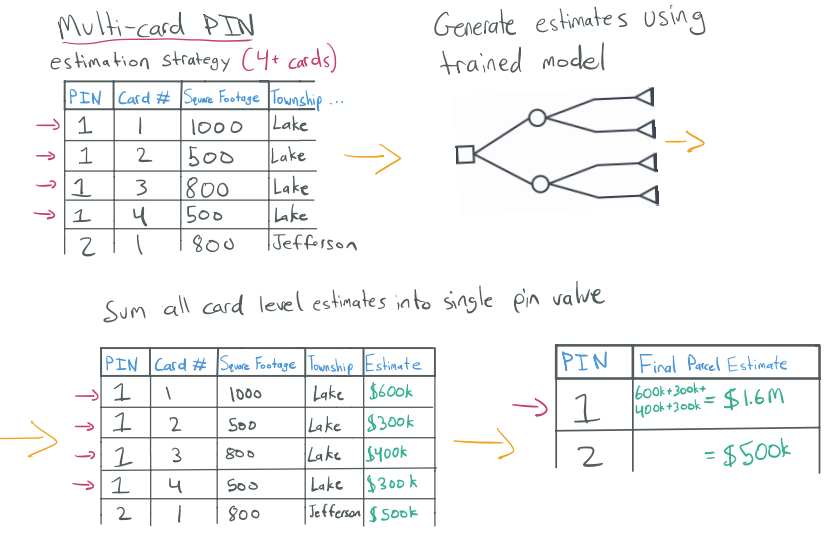 Multi-card PIN
estimation strategy (4+ cards)
PIN Card # Square Footage Township ...
1 1 1000 Lake
1 2 500 Lake
1 3 800 Lake
1 4 500 Lake
2 1 800 Jefferson
Generate estimates using
trained model
Sum all card level estimates into single pin value
PIN Card # Square Footage Township Estimate
1 1 1000 Lake $600k
1 2 500 Lake $300k
1 3 800 Lake $400k
1 4 500 Lake $300k
2 1 800 Jefferson $500k
PIN Final Parcel Estimate
1 600k+300k+
400k+300k = $1.6M
2 = $500k